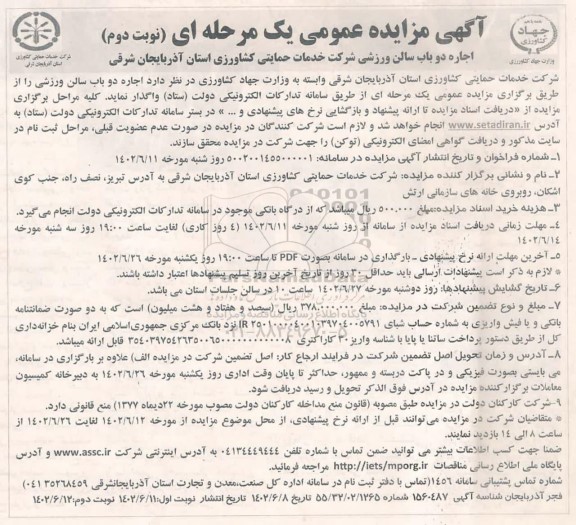 آگهی مزایده عمومی یک مرحله ای (نوبت دوم)
اجاره دو باب سالن ورزشی شرکت خدمات حمایتی کشاورزی استان آذربایجان شرقی
جهاد کشاورزی
وزارت جهاد کشاورزی
شرکت خدمات حمایتی کشاورزی
استان آذربایجان شرقی
شرکت خدمات حمایتی کشاورزی استان آذربایجان شرقی وابسته به وزارت جهاد کشاورزی در نظر دارد اجاره دو باب سالن ورزشی را از
طریق برگزاری مزایده عمومی یک مرحله ای از طریق سامانه تدارکات الکترونیکی دولت (ستاد) واگذار نماید. کلیه مراحل برگزاری
مزایده از «دریافت اسناد مزایده تا ارائه پیشنهاد و بازگشایی نرخ های پیشنهادی و ... » در بستر سامانه تدارکات الکترونیکی دولت (ستاد) به
آدرس www.setadiran.ir انجام خواهد شد و لازم است شرکت کنندگان در مزایده در صورت عدم عضویت قبلی، مراحل ثبت نام در
سایت مذکور و دریافت گواهی امضای الکترونیکی (توکن) را جهت شرکت در مزایده محقق سازند.
۱ـ شماره فراخوان و تاریخ انتشار آگهی مزایده در سامانه: ۵۰۰۲۰۰۱۴۵۵۰۰۰۰۰۱ روز شنبه مورخه ۱۴۰۲/۶/۱۱
۲ـ نام و نشانی برگزار کننده مزایده: شرکت خدمات حمایتی کشاورزی استان آذربایجان شرقی به آدرس تبریز، نصف راه، جنب کوی
اشکان، روبروی خانه های سازمانی ارتش
۳ـ هزینه خرید اسناد مزایده:مبلغ ۵۰۰.۰۰۰ ریال میباشد که از درگاه بانکی موجود در سامانه تدارکات الکترونیکی دولت انجام می‌گیرد.
۴ـ مهلت زمانی دریافت اسناد مزایده از سامانه از روز شنبه مورخه ۱۴۰۲/۶/۱۱ (۴ روز کاری) لغایت ساعت ۱۹:۰۰ روز سه شنبه مورخه
۱۴۰۲/۶/۱۴
۵ـ آخرین مهلت ارائه نرخ پیشنهادی ـ بارگذاری در سامانه بصورت PDF تا ساعت ۱۹:۰۰ روز یکشنبه مورخه ۱۴۰۲/۶/۲۶
* لازم به ذکر است پیشنهادات ارسالی باید حداقل ۳۰ روز از تاریخ آخرین روز تسلیم پیشنهادها اعتبار داشته باشند.
۶ـ تاریخ گشایش پیشنهادها: روز دوشنبه مورخه ۱۴۰۲/۶/۲۷ ساعت ۱۰ در سالن جلسات استان می باشد.
۷ـ مبلغ و نوع تضمین شرکت در مزایده: مبلغ ۳۷۸.۰۰۰.۰۰۰ ریال (سیصد و هفتاد و هشت میلیون) است که به دو صورت ضمانتنامه
بانکی و یا فیش واریزی به شماره حساب شبای
نزد بانک مرکزی جمهوری‌اسلامی ایران بنام خزانه‌داری
کل از طریق دستور پرداخت ساتنا یا پایا با شناسه واریز ۳۰ کاراکتری
قابل ارائه میباشد.
۸ـ آدرس و زمان تحویل اصل تضمین شرکت در فرایند ارجاع کار: اصل تضمین شرکت در مزایده (الف) علاوه بر بارگذاری در سامانه،
می بایستی بصورت فیزیکی و در پاکت دربسته و ممهور، حداکثر تا پایان وقت اداری روز یکشنبه مورخه ۱۴۰۲/۶/۲۶ به دبیرخانه کمیسیون
معاملات برگزار کننده مزایده در آدرس فوق الذکر تحویل و رسید دریافت شود.
۹ـ شرکت کارکنان دولت در مزایده طبق مصوبه (قانون منع مداخله کارکنان دولت مصوب مورخه ۲۲دیماه ۱۳۷۷) منع قانونی دارد.
* متقاضیان شرکت در مزایده می‌توانند قبل از ارائه نرخ پیشنهادی، از محل موضوع مزایده از مورخه ۱۴۰۲/۶/۱۲ لغایت ۱۴۰۲/۶/۲۶ از
ساعت ۸ الی ۱۴ بازدید نمایند.
ضمنا جهت کسب اطلاعات بیشتر می توانید ضمن تماس با شماره تلفن ۰۴۱۳۴۴۴۹۴۴۴ به آدرس اینترنتی شرکت www.assc.ir و آدرس
پایگاه ملی اطلاع رسانی مناقصات http://iets/mporg.ir مراجعه فرمائید.
شماره تماس پشتیبانی سامانه ۱۴۵۶(تماس با دفتر ثبت نام در سامانه اداره کل صنعت،معدن و تجارت استان آذربایجانشرقی ۳۵۲۶۸۴۵۹ ۰۴۱)
فجر آذربایجان شناسه آگهی ۱۵۶۰۴۸۷ شماره ۵۵/۳۲/۰۲/۱۲۶۵ تاریخ ۱۴۰۲/۶/۸ تاریخ انتشار نوبت اول:۱۴۰۲/۶/۱۱ نوبت دوم:۱۴۰۲/۶/۱۲